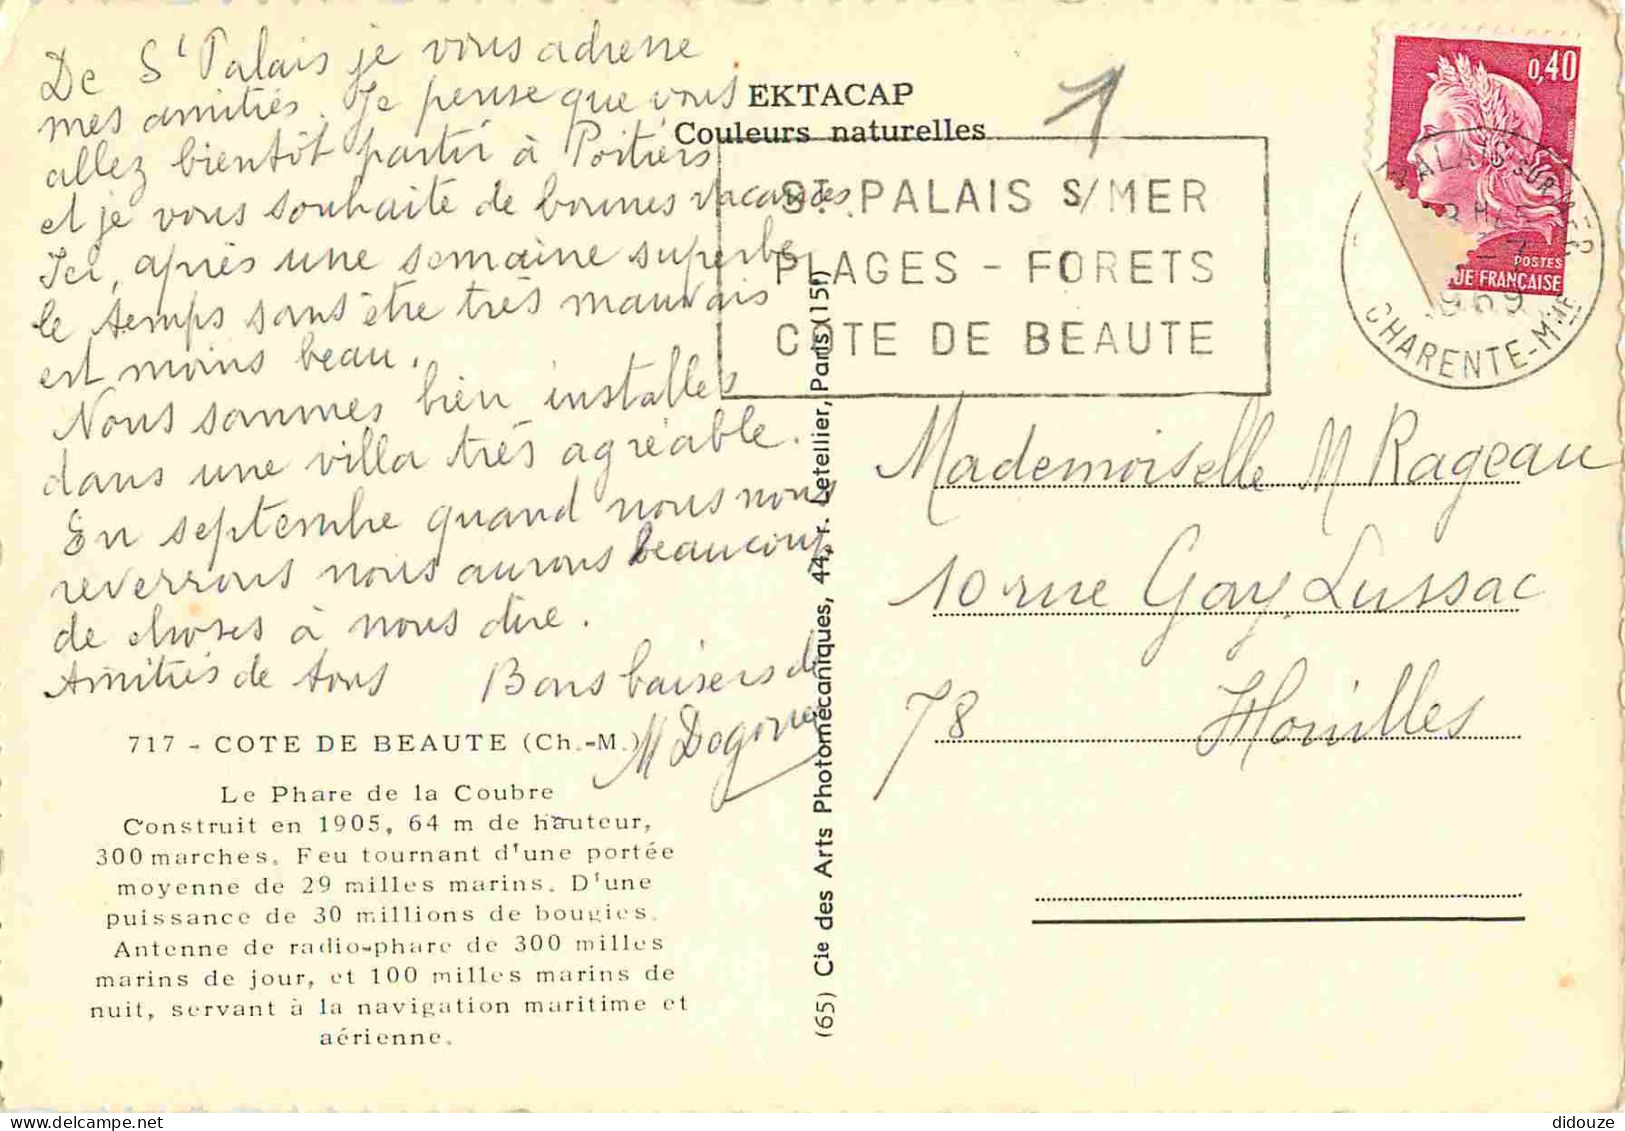 De St Palais je vous adresse
mes amitiés. Je pense que vous
allez bientôt partir à Poitiers
et je vous souhaite de bonnes vacances.
Ici, après une semaine superbe
le temps sans être très mauvais
est moins beau.
Nous sommes bien installés
dans une villa très agréable.
En septembre quand nous nous
reverrons nous aurons beaucoup
de choses à nous dire.
Amitiés de tous Bons baisers de
M
717 - COTE DE BEAUTE (Ch.-M.)
Le Phare de la Coubre
Construit en 1905, 64 m de hauteur,
300 marches. Feu tournant d'une portée
moyenne de 29 milles marins. D'une
puissance de 30 millions de bougies.
Antenne de radio-phare de 300 milles
marins de jour, et 100 milles marins de
nuit, servant à la navigation maritime et
aérienne.
EKTACAP
Couleurs naturelles
1
ST PALAIS S/MER
PLAGES - FORETS
COTE DE BEAUTE
(65) Cie des Arts Photomécaniques, 44, r. Letellier, Paris (15e)
0,40
POSTES
PALAIS SUR MER
1969
CHARENTE-Mme
Mademoiselle M Rageau
10 rue Gay Lussac
78 Houilles
didouze